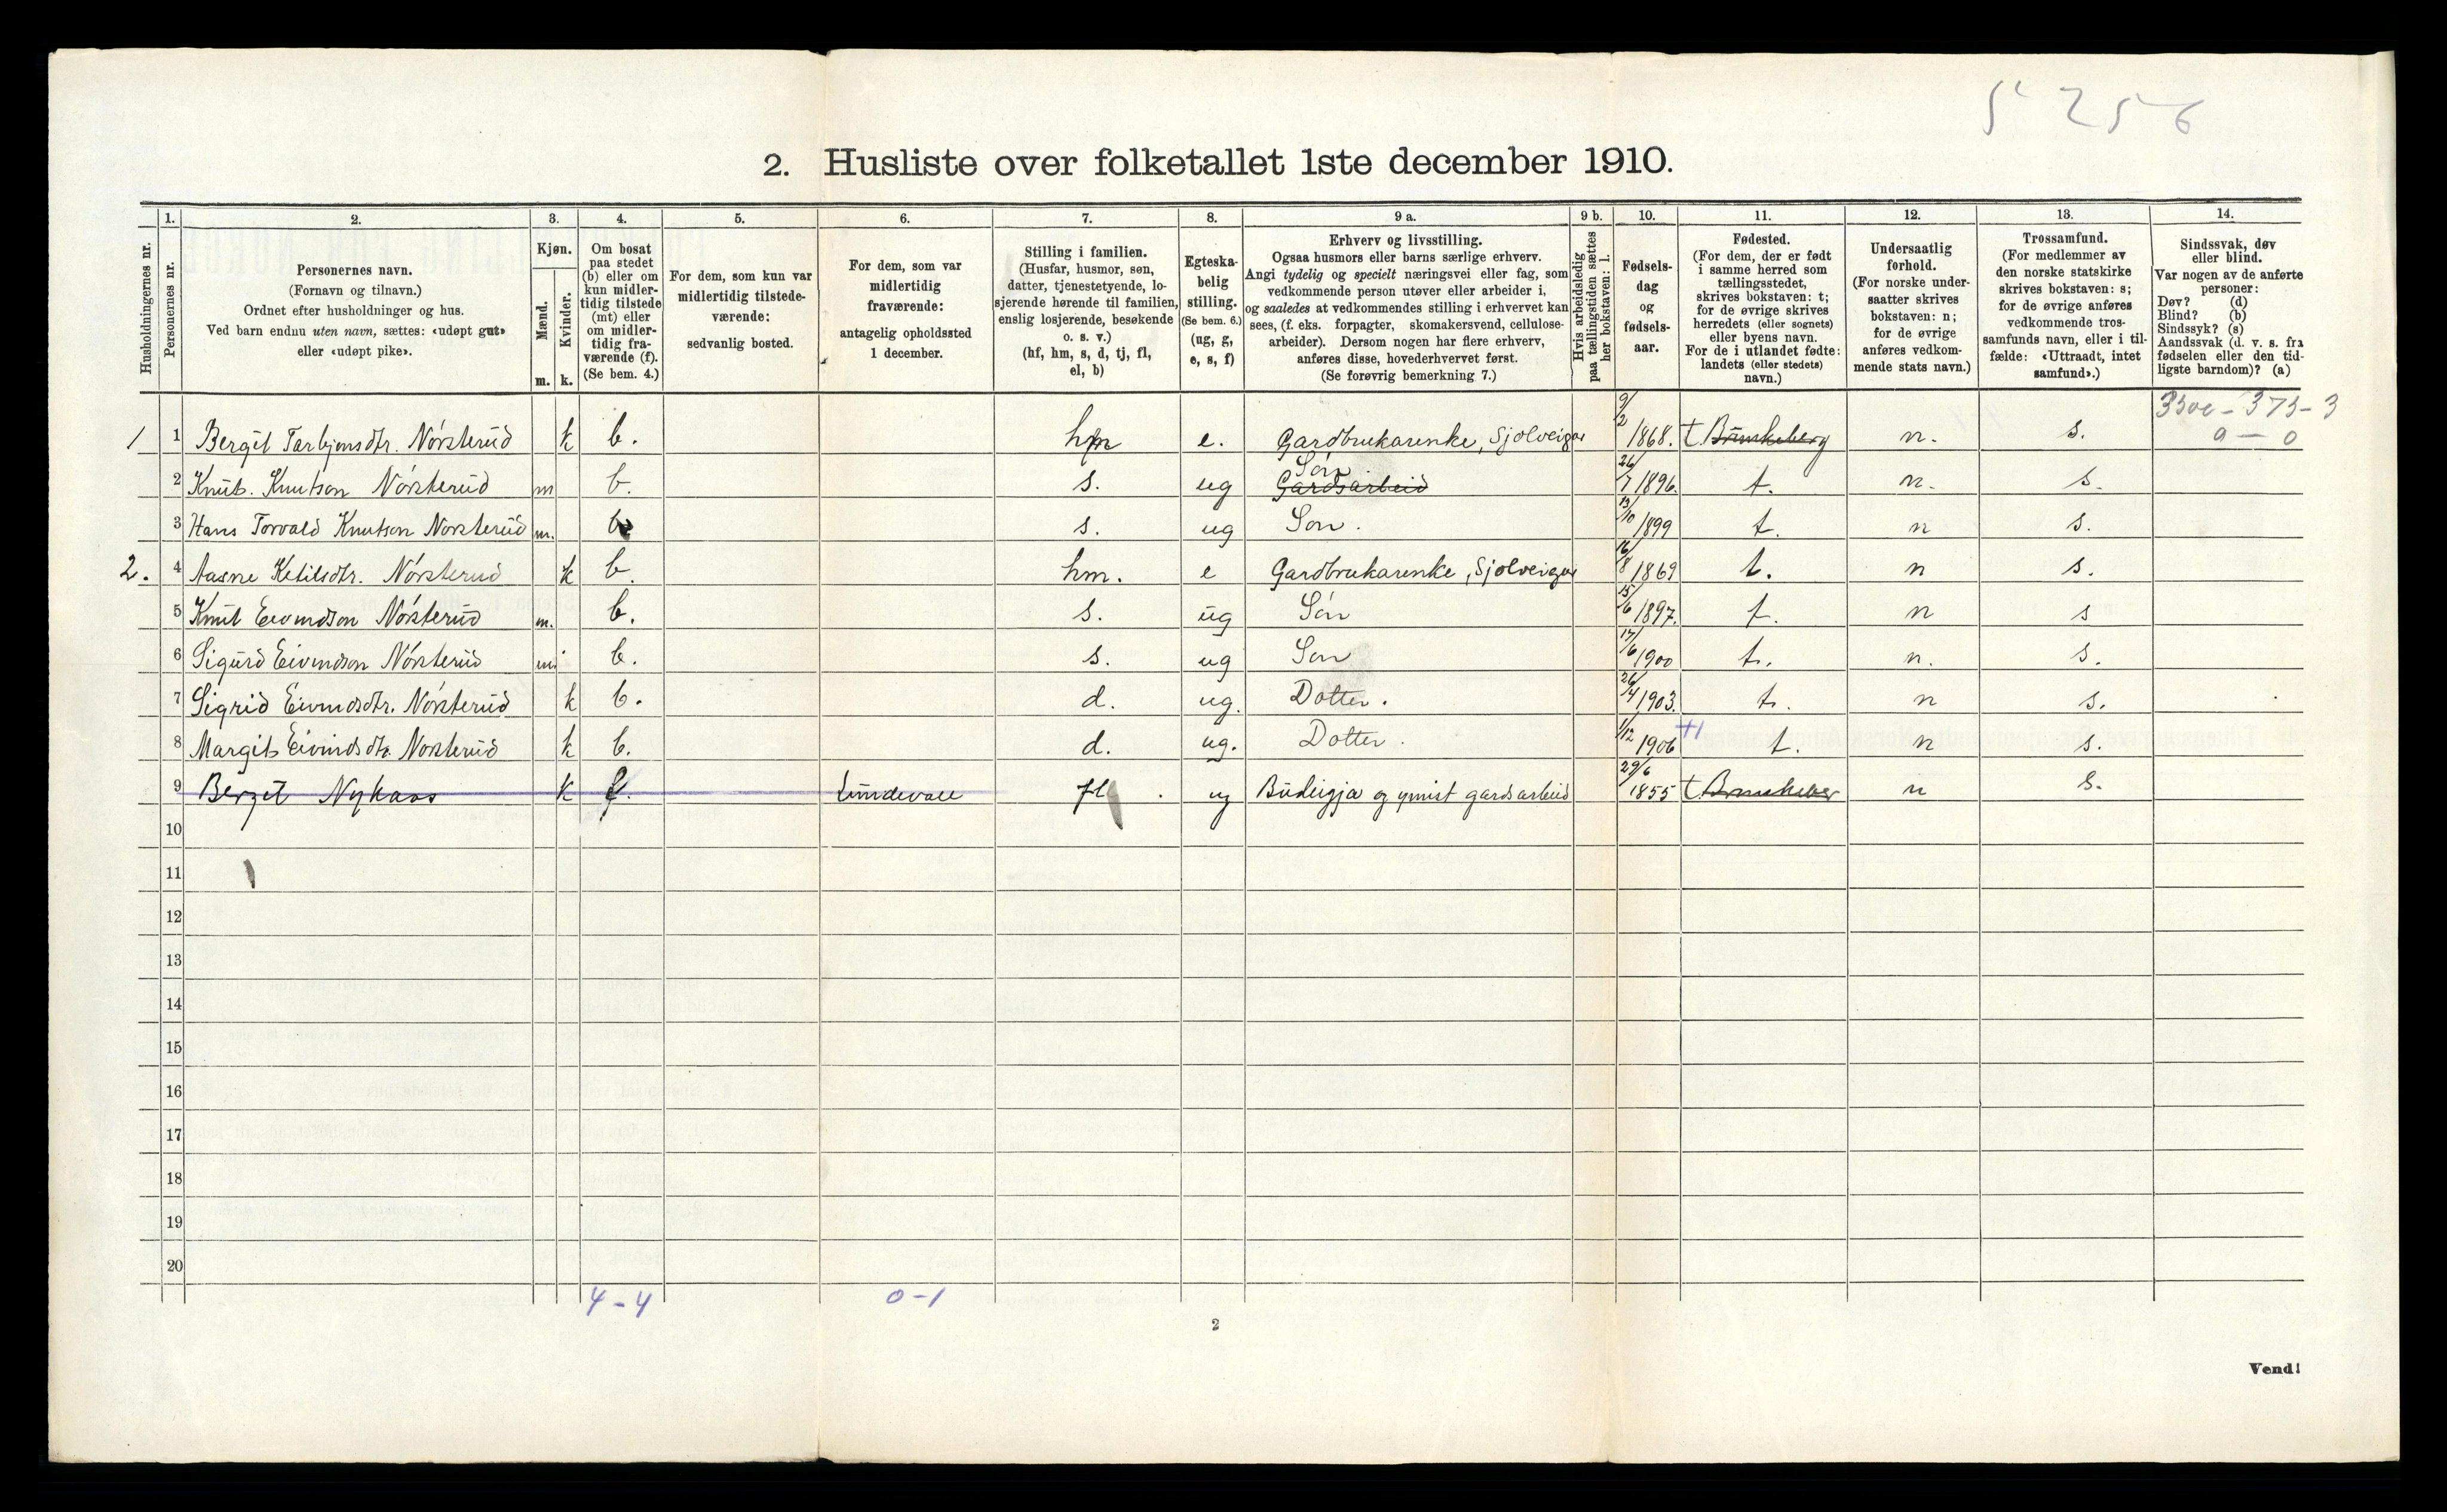 5256
2. Husliste over folketallet 1ste december 1910.
Husholdningernes nr.
1. Personernes nr.
2. Personernes navn. (Fornavn og tilnavn.) Ordnet efter husholdninger og hus. Ved barn endnu uten navn, sættes: «udøpt gut» eller «udøpt pike».
3. Kjøn. Mænd. m. Kvinder. k.
4. Om bosat paa stedet (b) eller om kun midlertidig tilstede (mt) eller om midlertidig fraværende (f). (Se bem. 4.)
5. For dem, som kun var midlertidig tilstedeværende: sedvanlig bosted.
6. For dem, som var midlertidig fraværende: antagelig opholdssted 1 december.
7. Stilling i familien. (Husfar, husmor, søn, datter, tjenestetyende, losjerende hørende til familien, enslig losjerende, besøkende o. s. v.) (hf, hm, s, d, tj, fl, el, b)
8. Egteskabelig stilling. (Se bem. 6.) (ug, g, e, s, f)
9 a. Erhverv og livsstilling. Ogsaa husmors eller barns særlige erhverv. Angi tydelig og specielt næringsvei eller fag, som vedkommende person utøver eller arbeider i, og saaledes at vedkommendes stilling i erhvervet kan sees, (f. eks. forpagter, skomakersvend, cellulosearbeider). Dersom nogen har flere erhverv, anføres disse, hovederhvervet først. (Se forøvrig bemerkning 7.)
9 b. Hvis arbeidsledig paa tællingstiden sættes her bokstaven: l.
10. Fødselsdag og fødselsaar.
11. Fødested. (For dem, der er født i samme herred som tællingsstedet, skrives bokstaven: t; for de øvrige skrives herredets (eller sognets) eller byens navn. For de i utlandet fødte: landets (eller stedets) navn.)
12. Undersaatlig forhold. (For norske undersaatter skrives bokstaven: n; for de øvrige anføres vedkommende stats navn.)
13. Trossamfund. (For medlemmer av den norske statskirke skrives bokstaven: s; for de øvrige anføres vedkommende trossamfunds navn, eller i tilfælde: «Uttraadt, intet samfund».)
14. Sindssvak, døv eller blind. Var nogen av de anførte personer: Døv? (d) Blind? (b) Sindssyk? (s) Aandssvak (d. v. s. fra fødselen eller den tidligste barndom)? (a)
3500 - 375 - 3
0 - 0
1 1 Bergit Tarbjønsdtr. Nórsterud k b. hm e. Gardbrukarenke, Sjølveigar 9/2 1868. t. Brunkeberg n. s.
2 Knut. Knutson Nórsterud m b. s. ug Són Gardsarbeid 26/7 1896. t. n. s.
3 Hans Torvald Knutson Norsterud m. b s. ug Son. 13/10 1899 t. n s.
2. 4 Aasne Ketilsdtr. Nórsterud k b. hm. e Gardbrukarenke, Sjølveigar 16/8 1869 t. n s.
5 Knut Eivindson Nórsterud m. b. s. ug Són 15/6 1897. t. n s
6 Sigurd Eivindson Nórsterud m. b. s. ug Son 17/6 1900 t. n. s.
7 Sigrid Eivindsdtr. Nórsterud k b. d. ug. Dotter. 26/4 1903. t. n s.
8 Margit Eivindsdtr. Norsterud k b. d. ug. Dotter. 1/12 1906 t. n s.
9 Bergit Nykaas k f. Lundevall fl. ug Budeigja og ymist gardsarbeid 29/6 1855 t. Brunkeber n s.
10
11
12
13
14
15
16
17
18
19
20
4-4 0-1
2
Vend!